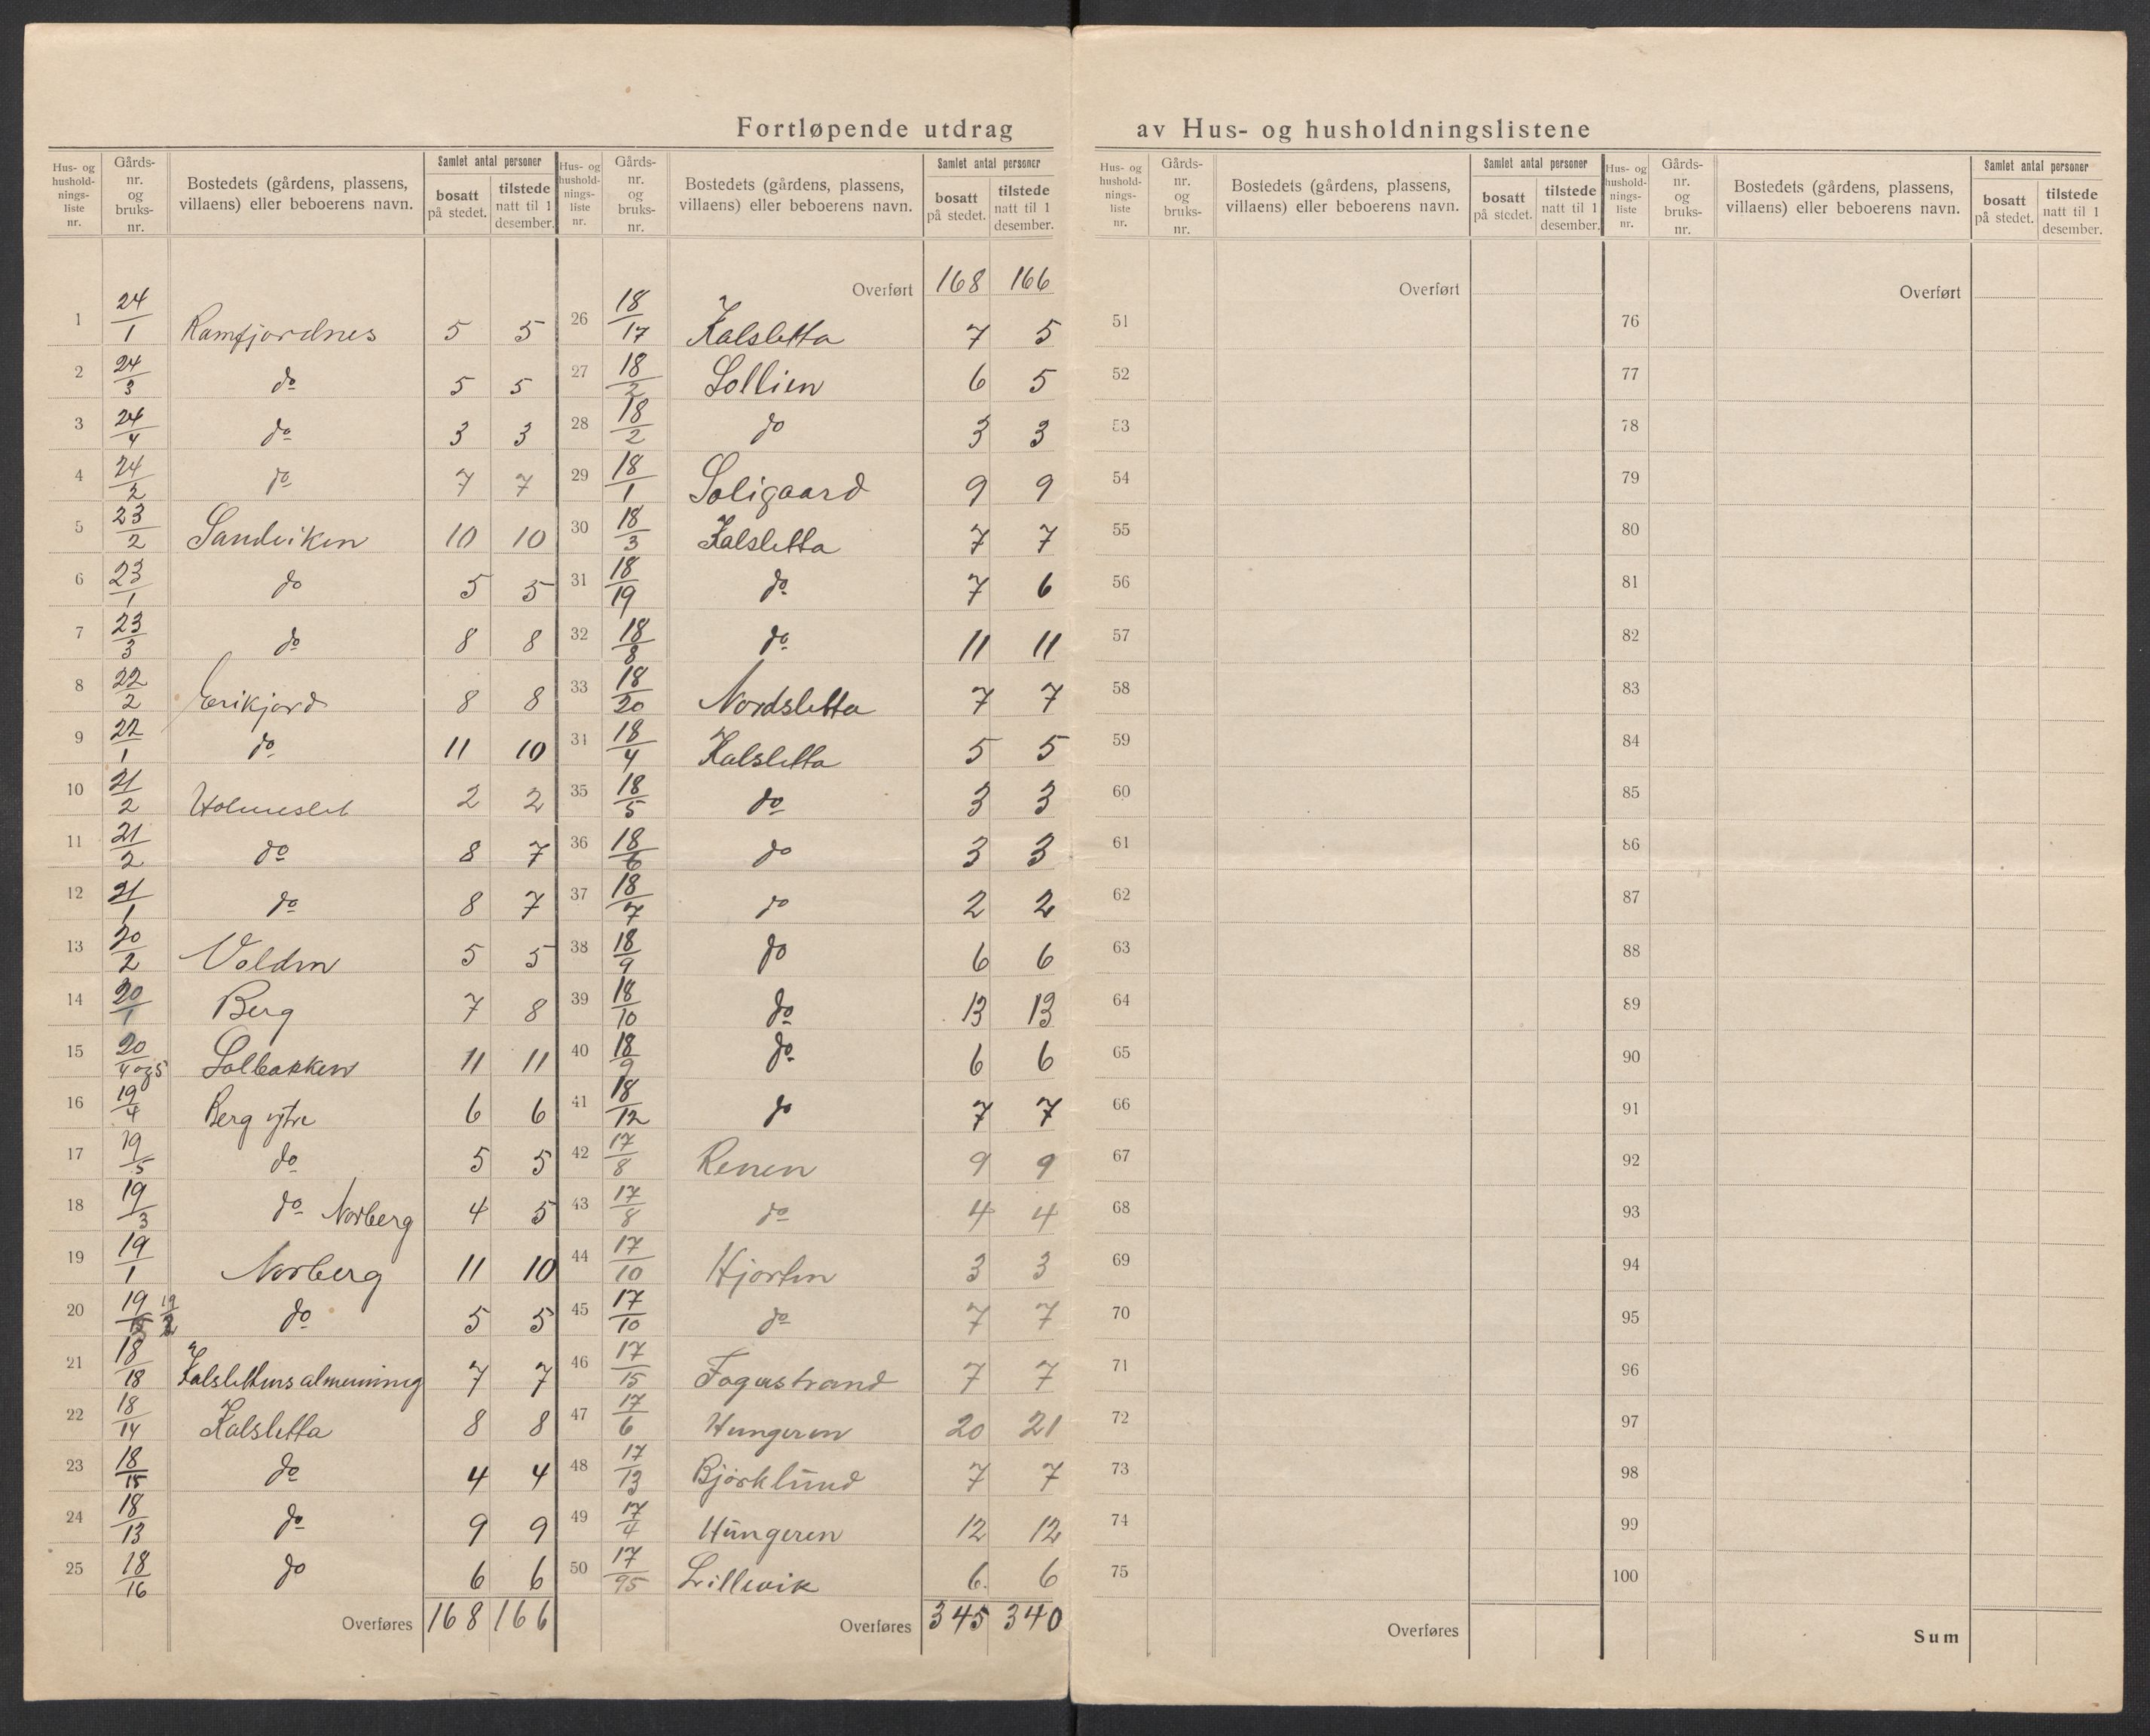 Fortløpende utdrag av Hus- og husholdningslistene
Hus- og husholdnings-liste nr. | Gårds-nr. og bruks-nr. | Bostedets (gårdens, plassens, villaens) eller beboerens navn. | Samlet antal personer: bosatt på stedet. | tilstede natt til 1 desember.
1 24/1 Ramfjordnes 5 5
2 24/3 do 5 5
3 24/4 do 3 3
4 24/2 do 7 7
5 23/2 Sandviken 10 10
6 23/1 do 5 5
7 23/3 do 8 8
8 22/2 Erikjord 8 8
9 22/1 do 11 10
10 21/2 Holmeslet 2 2
11 21/2 do 8 7
12 21/1 do 8 7
13 20/2 Volden 5 5
14 20/1 Berg 7 8
15 20/4 og 5 Solbakken 11 11
16 19/4 Berg ytre 6 6
17 19/5 do 5 5
18 19/3 do Norberg 4 5
19 19/1 Norberg 11 10
20 19/ 19/2 do 5 5
21 18/18 Kalslettens almenning 7 7
22 18/14 Kalsletta 8 8
23 18/15 do 4 4
24 18/13 do 9 9
25 18/16 do 6 6
Overføres 168 166
Hus- og husholdnings-liste nr. | Gårds-nr. og bruks-nr. | Bostedets (gårdens, plassens, villaens) eller beboerens navn. | Samlet antal personer: bosatt på stedet. | tilstede natt til 1 desember.
Overført 168 166
26 18/17 Kalsletta 7 5
27 18/2 Sollien 6 5
28 18/2 do 3 3
29 18/1 Soligaard 9 9
30 18/3 Kalsletta 7 7
31 18/19 do 7 6
32 18/8 do 11 11
33 18/20 Nordsletta 7 7
34 18/4 Kalsletta 5 5
35 18/5 do 3 3
36 18/6 do 3 3
37 18/7 do 2 2
38 18/9 do 6 6
39 18/10 do 13 13
40 18/9 do 6 6
41 18/12 do 7 7
42 17/8 Renen 9 9
43 17/8 do 4 4
44 17/10 Hjorten 3 3
45 17/10 do 7 7
46 17/15 Fagerstrand 7 7
47 17/6 Hungeren 20 21
48 17/13 Bjørklund 7 7
49 17/4 Hungeren 12 12
50 17/95 Lillevik 6 6
Overføres 345 340
Hus- og husholdnings-liste nr. | Gårds-nr. og bruks-nr. | Bostedets (gårdens, plassens, villaens) eller beboerens navn. | Samlet antal personer: bosatt på stedet. | tilstede natt til 1 desember.
Overført
51
52
53
54
55
56
57
58
59
60
61
62
63
64
65
66
67
68
69
70
71
72
73
74
75
Overføres
Hus- og husholdnings-liste nr. | Gårds-nr. og bruks-nr. | Bostedets (gårdens, plassens, villaens) eller beboerens navn. | Samlet antal personer: bosatt på stedet. | tilstede natt til 1 desember.
Overført
76
77
78
79
80
81
82
83
84
85
86
87
88
89
90
91
92
93
94
95
96
97
98
99
100
Sum